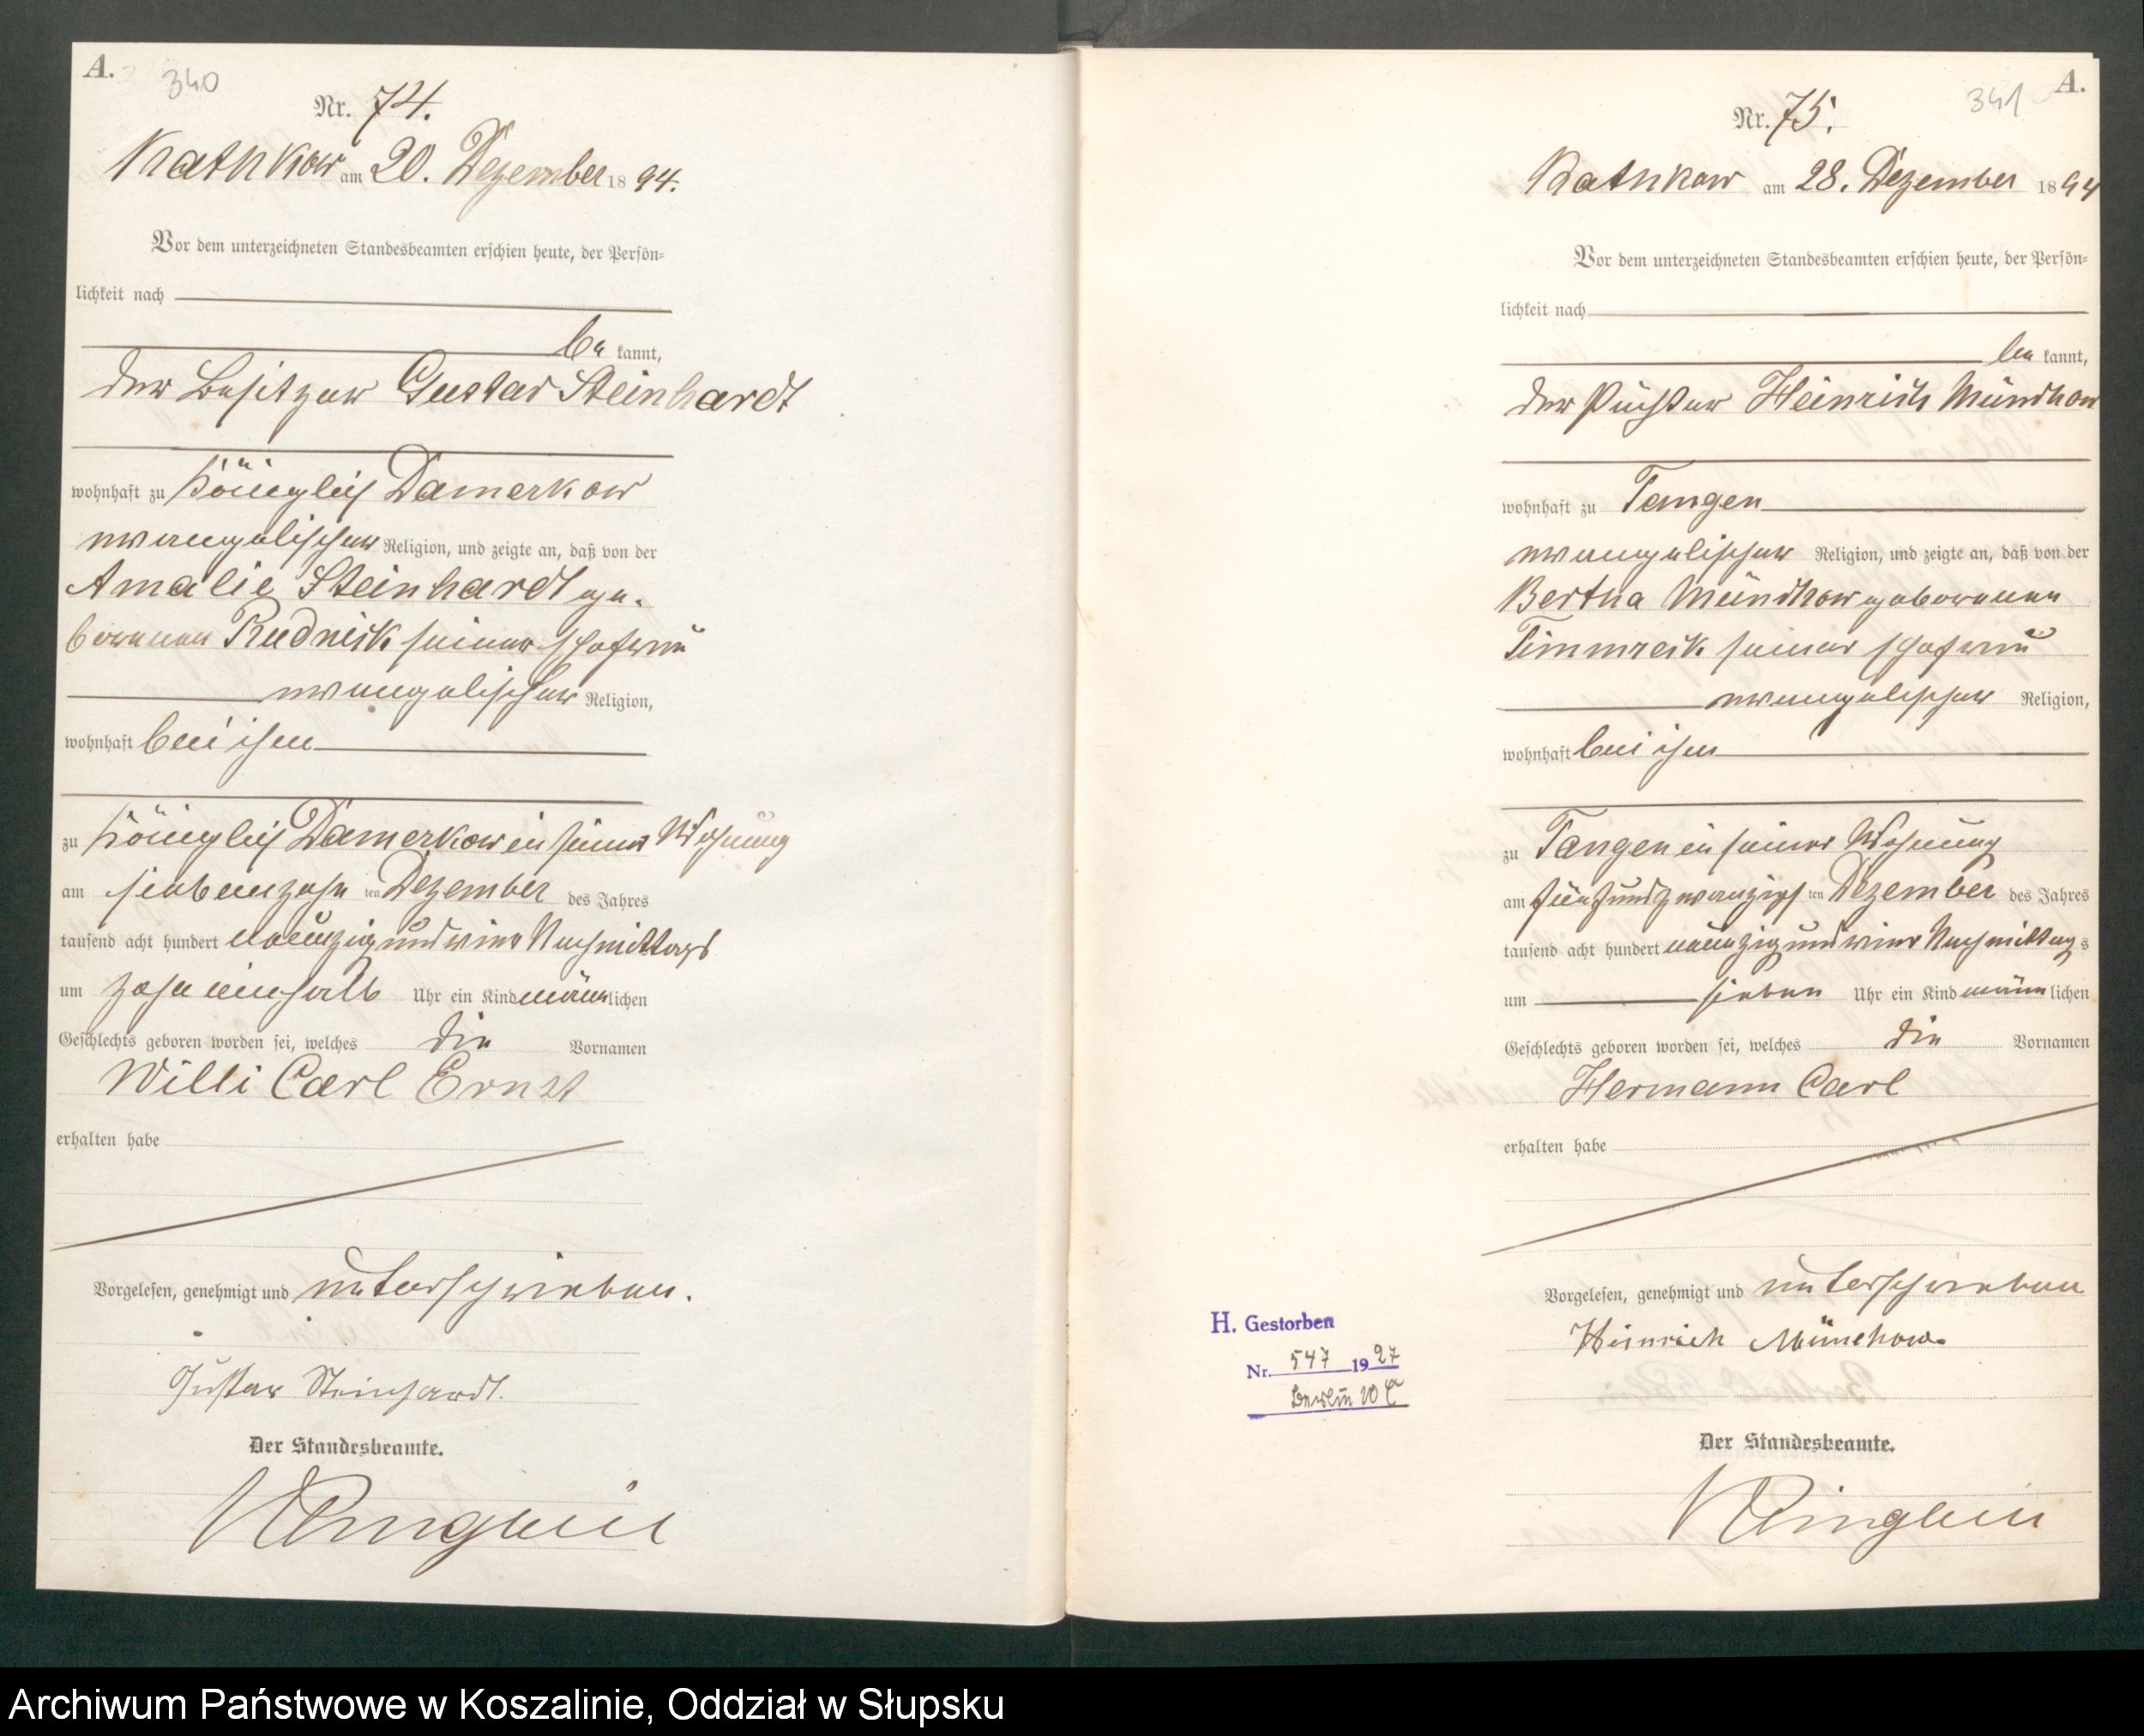 A.
340
Nr. 74.
Kathkow am 20. Dezember 1894.
Vor dem unterzeichneten Standesbeamten erschien heute, der Persön-
lichkeit nach
be kannt,
der Besitzer Gustav Steinhardt
wohnhaft zu Königlich Damerkow
evangelischer Religion, und zeigte an, daß von der
Amalie Steinhardt ge-
borenen Rudnick seiner Ehefrau
evangelischer Religion,
wohnhaft bei ihm
zu Königlich Damerkow in seiner Wohnung
am siebenzehn ten Dezember des Jahres
tausend acht hundert neunzig und vier Nachmittags
um zehn einhalb Uhr ein Kind männlichen
Geschlechts geboren worden sei, welches die Vornamen
Willi Carl Ernst
erhalten habe
Vorgelesen, genehmigt und unterschrieben.
Gustav Steinhardt.
Der Standesbeamte.
A.
341
Nr. 75.
Kathkow am 28. Dezember 1894
Vor dem unterzeichneten Standesbeamten erschien heute, der Persön-
lichkeit nach
be kannt,
der Heinrich Münchow
wohnhaft zu Tangen
evangelischer Religion, und zeigte an, daß von der
Bertha Münchow geborenen
Timmreck seiner Ehefrau
evangelischer Religion,
wohnhaft bei ihm
zu Tangen in seiner Wohnung
am fünfundzwanzigs ten Dezember des Jahres
tausend acht hundert neunzig und vier Nachmittags
um sieben Uhr ein Kind männlichen
Geschlechts geboren worden sei, welches die Vornamen
Hermann Carl
erhalten habe
Vorgelesen, genehmigt und unterschrieben
Heinrich Münchow.
Der Standesbeamte.
H. Gestorben
Nr. 547 1927
Berlin
Archiwum Państwowe w Koszalinie, Oddział w Słupsku